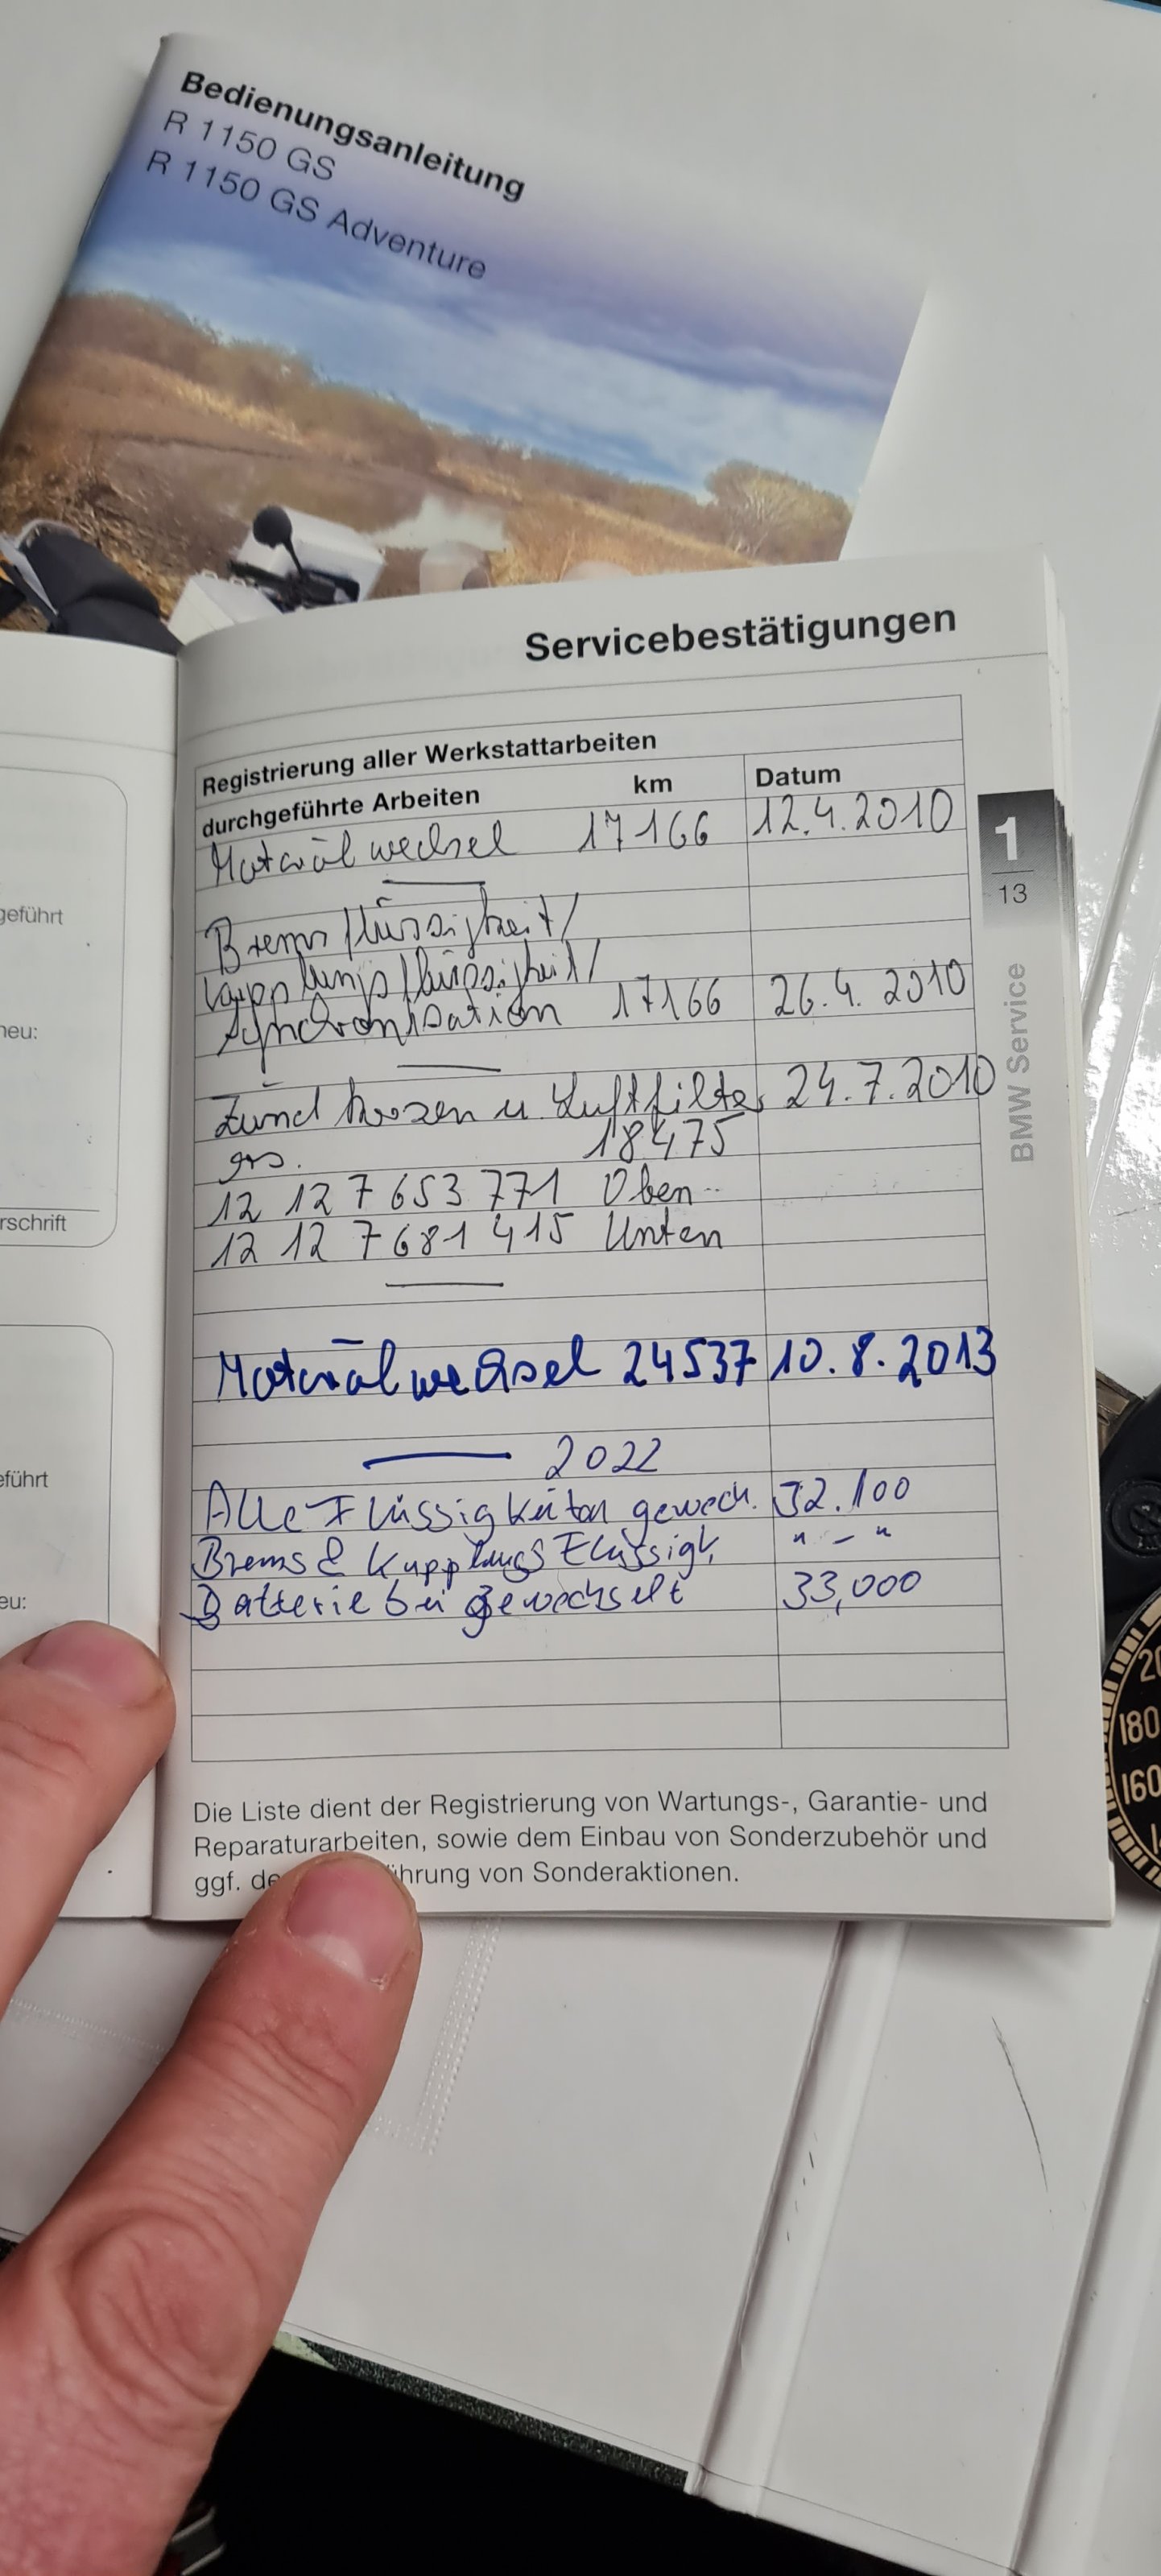 Bedienungsanleitung
R 1150 GS
R 1150 GS Adventure
Servicebestätigungen
Registrierung aller Werkstattarbeiten
durchgeführte Arbeiten km Datum
Motorölwechsel 17166 12.4.2010
Bremsflüssigkeit/
Kupplungsflüssigkeit/
Synchronisation 17166 26.4.2010
Zündkerzen u. Luftfilter 24.7.2010
18475
12 12 7 653 771 Oben
12 12 7 681 415 Unten
Motorölwechsel 24537 10.8.2013
2022
Alle Flüssigkeiten gewech. 32.100
Brems & Kupplungs Flüssigk. " - "
Batterie bei gewechselt 33,000
Die Liste dient der Registrierung von Wartungs-, Garantie- und
Reparaturarbeiten, sowie dem Einbau von Sonderzubehör und
ggf. de hrung von Sonderaktionen.
1
13
BMW Service
geführt
neu:
rschrift
eführt
eu:
20
180
160